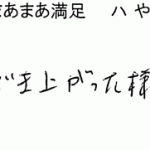 まあまあ満足 ハや
き上がった様